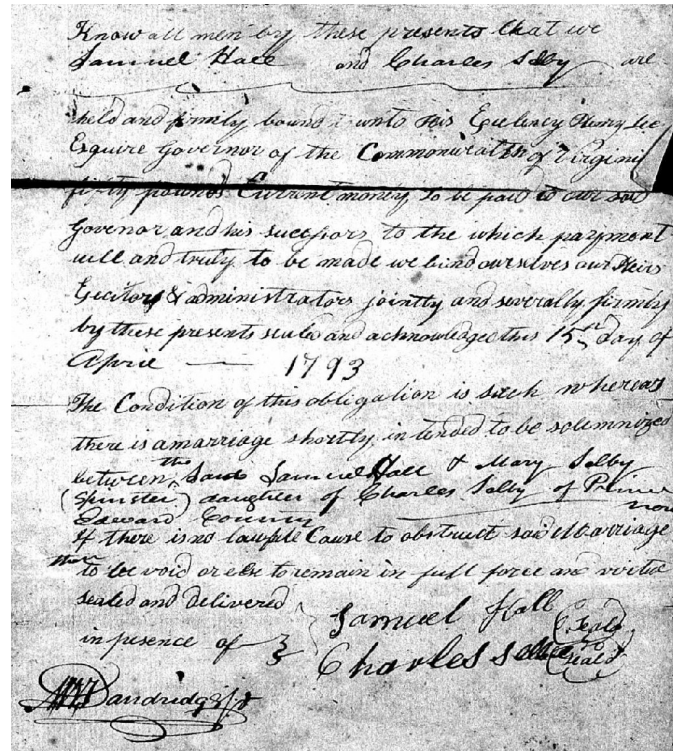 Know all men by these presents that we
Samuel Hall and Charles Selby are
held and firmly bound unto His Exelency Henry Lee
Esquire Governor of the Commonwealth of Virginia
fifty pounds Current money to be paid to our said
Govenor and his successors to the which payment
well and truly to be made we bind ourselves our Heirs
Excitors & administrators jointly and severally firmly
by these presents seald and acknowledged this 15th day of
April — 1793
The Condition of this obligation is such whereas
there is a marriage shortly intended to be solemnized
between the Said Samuel Hall & Mary Selby
(Spinster) daughter of Charles Selby of Prince
Edward County now
if there is no lawfull Cause to obstruct said Marriage
then to be void or else to remain in full force and virtue
sealed and delivered
in presence of
Samuel Hall Seald
Charles Selbee Seald
Dandridge